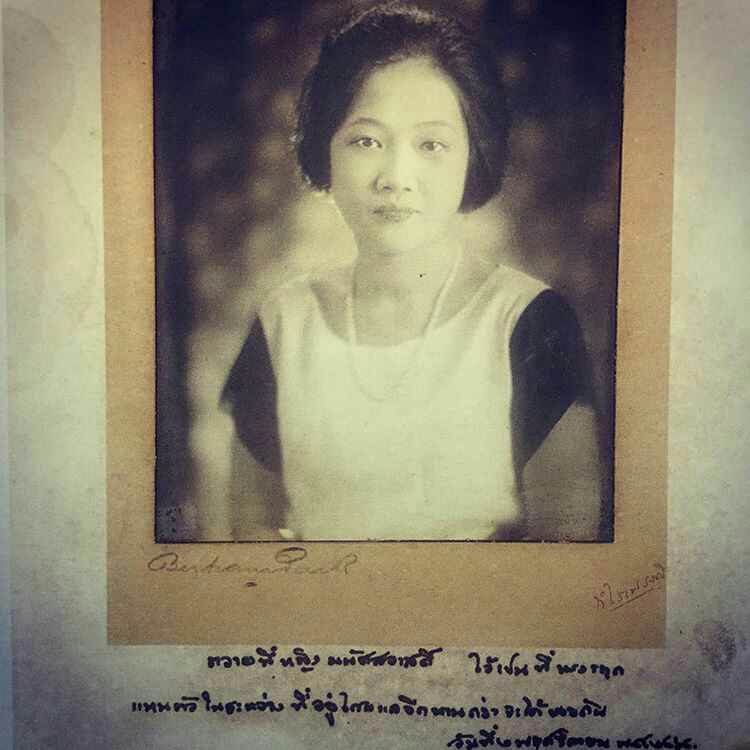 Bertram Park
รำไพพรรณี
ถวายที่หญิง มนัสสวาสดิ์ ไว้เป็นที่ระฤก
แทนตัวในระหว่างที่อยู่ไกลแลอีกนานกว่าจะได้พบกัน
วันที่ พฤศจิกายน